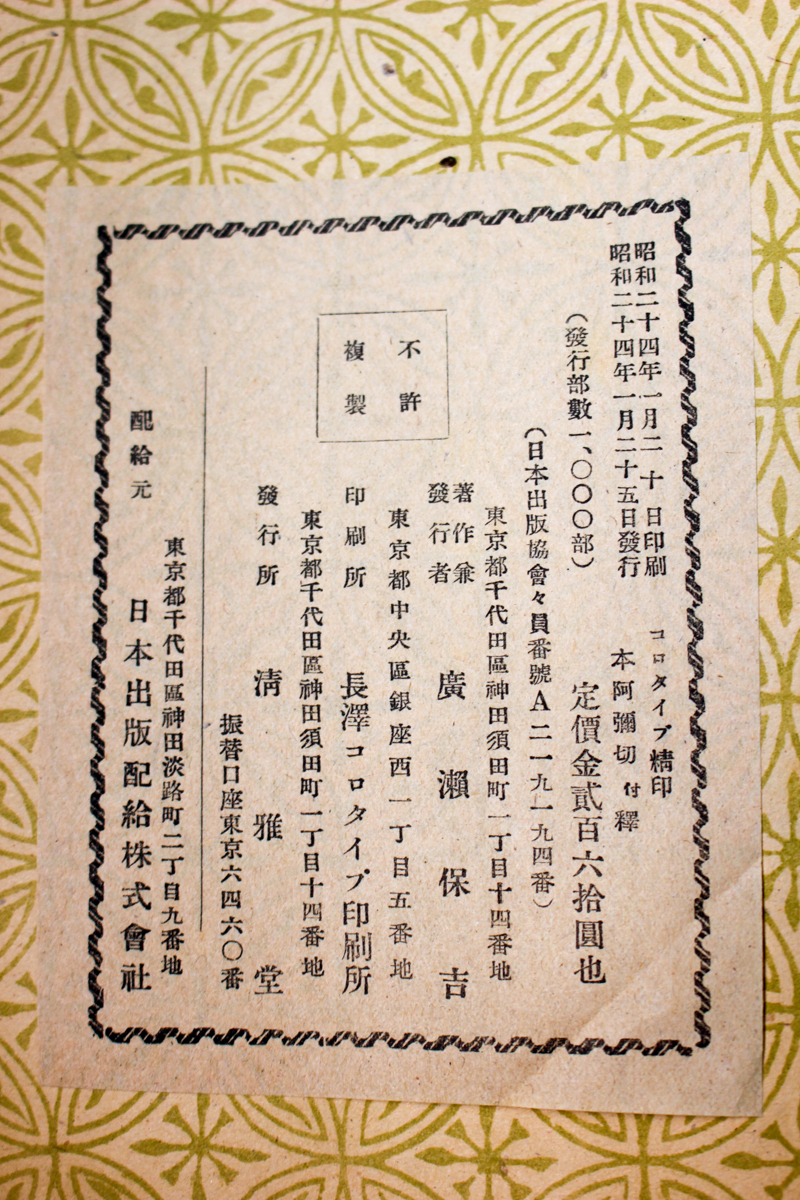 昭和二十四年一月二十日印刷
昭和二十四年一月二十五日發行
コロタイプ精印
本阿彌切 付釋
(發行部數一、〇〇〇部)
定價金貳百六拾圓也
(日本出版協會々員番號A二一九一九四番)
東京都千代田區神田須田町一丁目十四番地
著作兼
發行者 廣瀨保吉
不許
複製
東京都中央區銀座西一丁目五番地
印刷所 長澤コロタイプ印刷所
東京都千代田區神田須田町一丁目十四番地
發行所 淸雅堂
振替口座東京六四六〇番
東京都千代田區神田淡路町二丁目九番地
配給元 日本出版配給株式會社